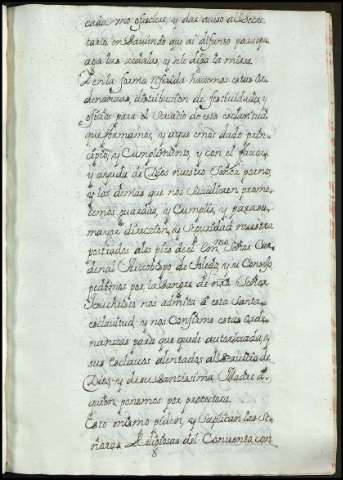 cada uno ofreciere, y dar aviso al Secre-
tario, en haviendo qui ai difunto para que
aga las zedulas, y se le diga la misa.
Y en la forma referida hacemos estas or-
denanzas, distribucion de festividades, y
oficios para el Servicio de esta esclavitud
que firmamos, y a que emos dado prin-
cipio, y Cumplimiento, y con el favor,
y ayuda de Dios nuestro Señor por nos,
y los demas que nos Subcedieren prome-
temos guardar, y Cumplir, y para su
mayor direccion, y Seguridad nuestra
postrados a los pies de el Emmo Señor Car-
denal Arzobispo de Toledo, y su Consejo
pedimos por la Sangre de ntro Señor
Jesuchristo nos admita a esta Santa
esclavitud, y nos Confirme estas orde-
nanzas para que quede autorizada, y
sus esclavos alentados al Servicio de
Dios, y de su Santissima Madre a
quien ponemos por protectora.
Esto mismo piden, y Suplican las Se-
ñoras Religiosas del Convento, con